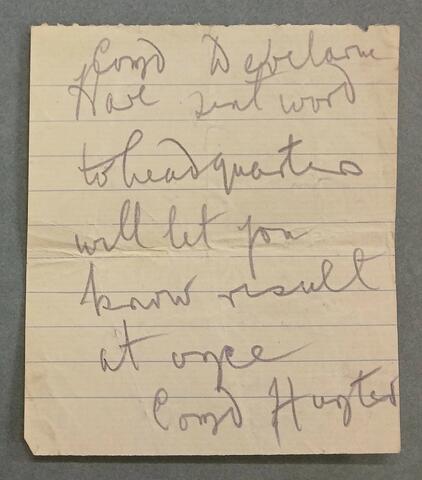 Comd
Have sent word
to headquarters
will let you
know result
at once
Comd Hunter